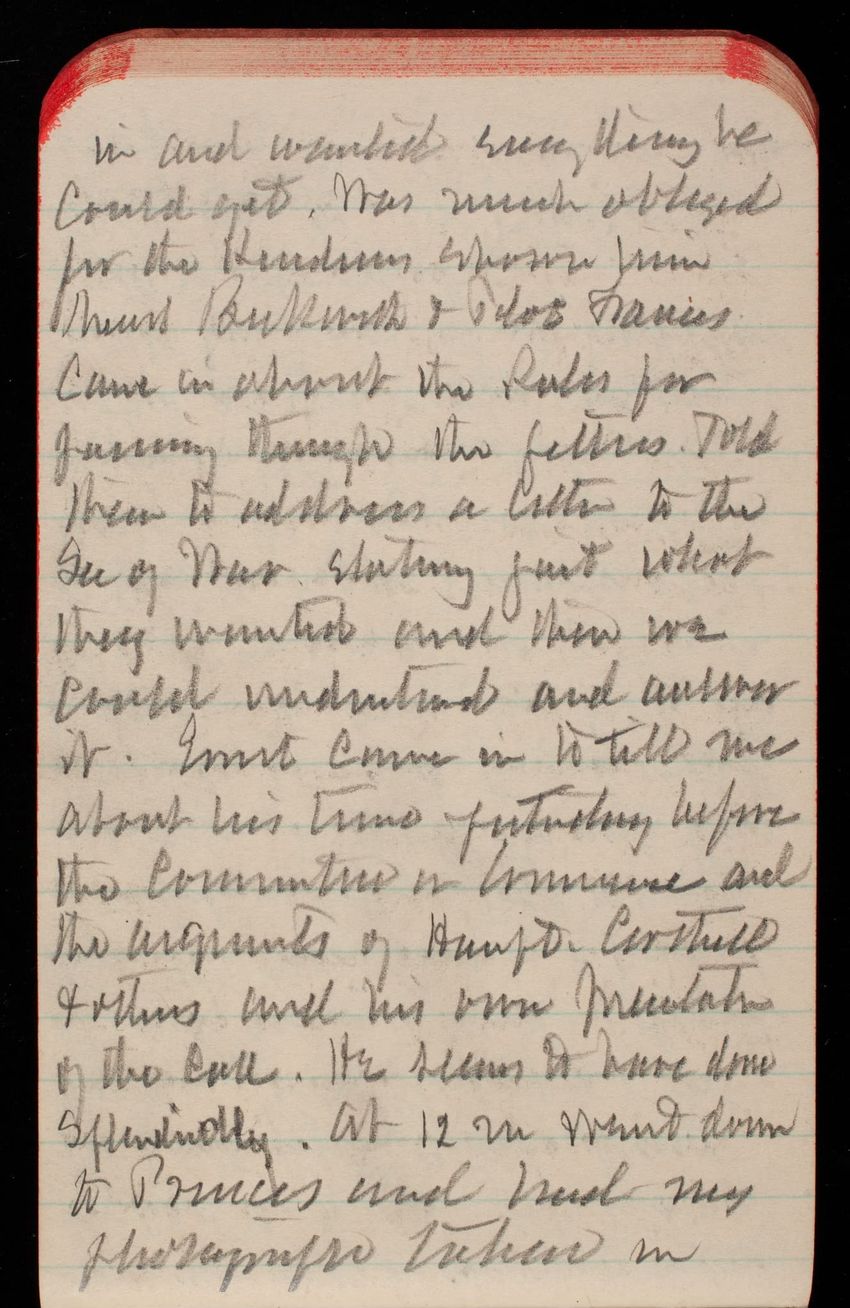 in and wanted everything he
could get. Was much obliged
for the
Beckwith & Pilot Francis
came in about the Rules for
passing through the jetties. Told
them to address a letter to the
Sec of War stating just what
they wanted and then we
could understand and answer
it. Ernst came in to tell me
about his time yesterday before
the Committee on Commerce and
the arguments of Haupt. Corthell
& others and his own presentation
of the case. He seems to have done
splendidly. At 12 m went down
to Princes and had my
photographs taken in